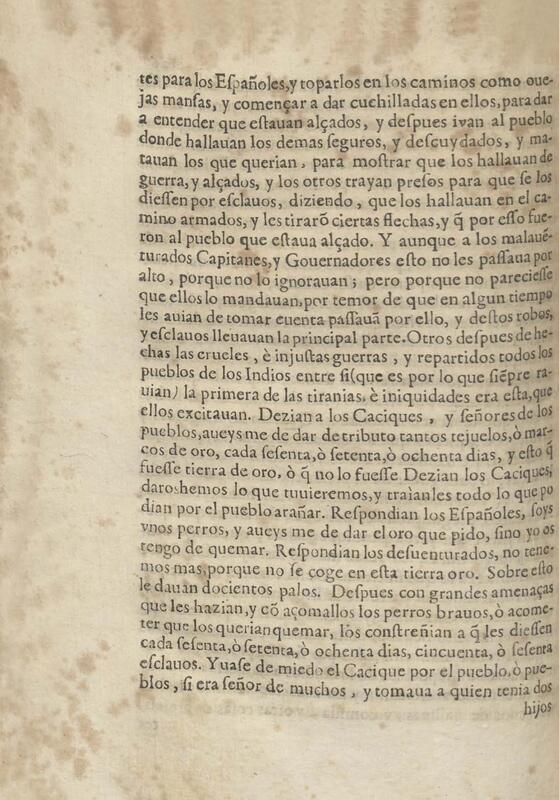 tes para los Eſpañoles,y toparlos en los caminos como oue-
jas manſas, y començar a dar cuchilladas en ellos, para dar
a entender que eſtauan alçados, y deſpues ivan al pueblo
donde hallauan los demas ſeguros, y deſcuydados, y ma-
tauan los que querian, para moſtrar que los hallauan de
guerra, y alçados, y los otros trayan preſos para que ſe los
dieſſen por eſclauos, diziendo, que los hallauan en el ca-
mino armados, y les tirarõ ciertas flechas, y q̃ por eſſo fue-
ron al pueblo que eſtaua alçado. Y aunque a los malauẽ-
turados Capitanes, y Gouernadores eſto no les paſſaua por
alto, porque no lo ignorauan; pero porque no parecieſſe
que ellos lo mandauan, por temor de que en algun tiempo
les auian de tomar cuenta paſſauã por ello, y deſtos robos,
y eſclauos lleuauan la principal parte. Otros deſpues de he-
chas las crueles, è injuſtas guerras, y repartidos todos los
pueblos de los Indios entre ſi (que es por lo que ſiẽpre ra-
uian) la primera de las tiranias, è iniquidades era eſta, que
ellos excitauan. Dezian a los Caciques, y ſeñores de los
pueblos, aueys me de dar de tributo tantos tejuelos, ò mar-
cos de oro, cada ſeſenta, ò ſetenta, ò ochenta dias, y eſto q̃
fueſſe tierra de oro, ò q̃ no lo fueſſe Dezian los Caciques,
daroshemos lo que tuuieremos, y traianles todo lo que po
dian por el pueblo arañar. Reſpondian los Eſpañoles, ſoys
vnos perros, y aueys me de dar el oro que pido, ſino yo os
tengo de quemar. Reſpondian los deſuenturados, no tene-
mos mas, porque no ſe coge en eſta tierra oro. Sobre eſto
le dauan docientos palos. Deſpues con grandes amenaças
que les hazian, y cõ açomallos los perros brauos, ò acome-
ter que los querian quemar, los conſtreñian a q̃ les dieſſen
cada ſeſenta, ò ſetenta, ò ochenta dias, cincuenta, ò ſeſenta
eſclauos. Yuaſe de miedo el Cacique por el pueblo, ò pue-
blos, ſi era ſeñor de muchos, y tomaua a quien tenia dos
hijos